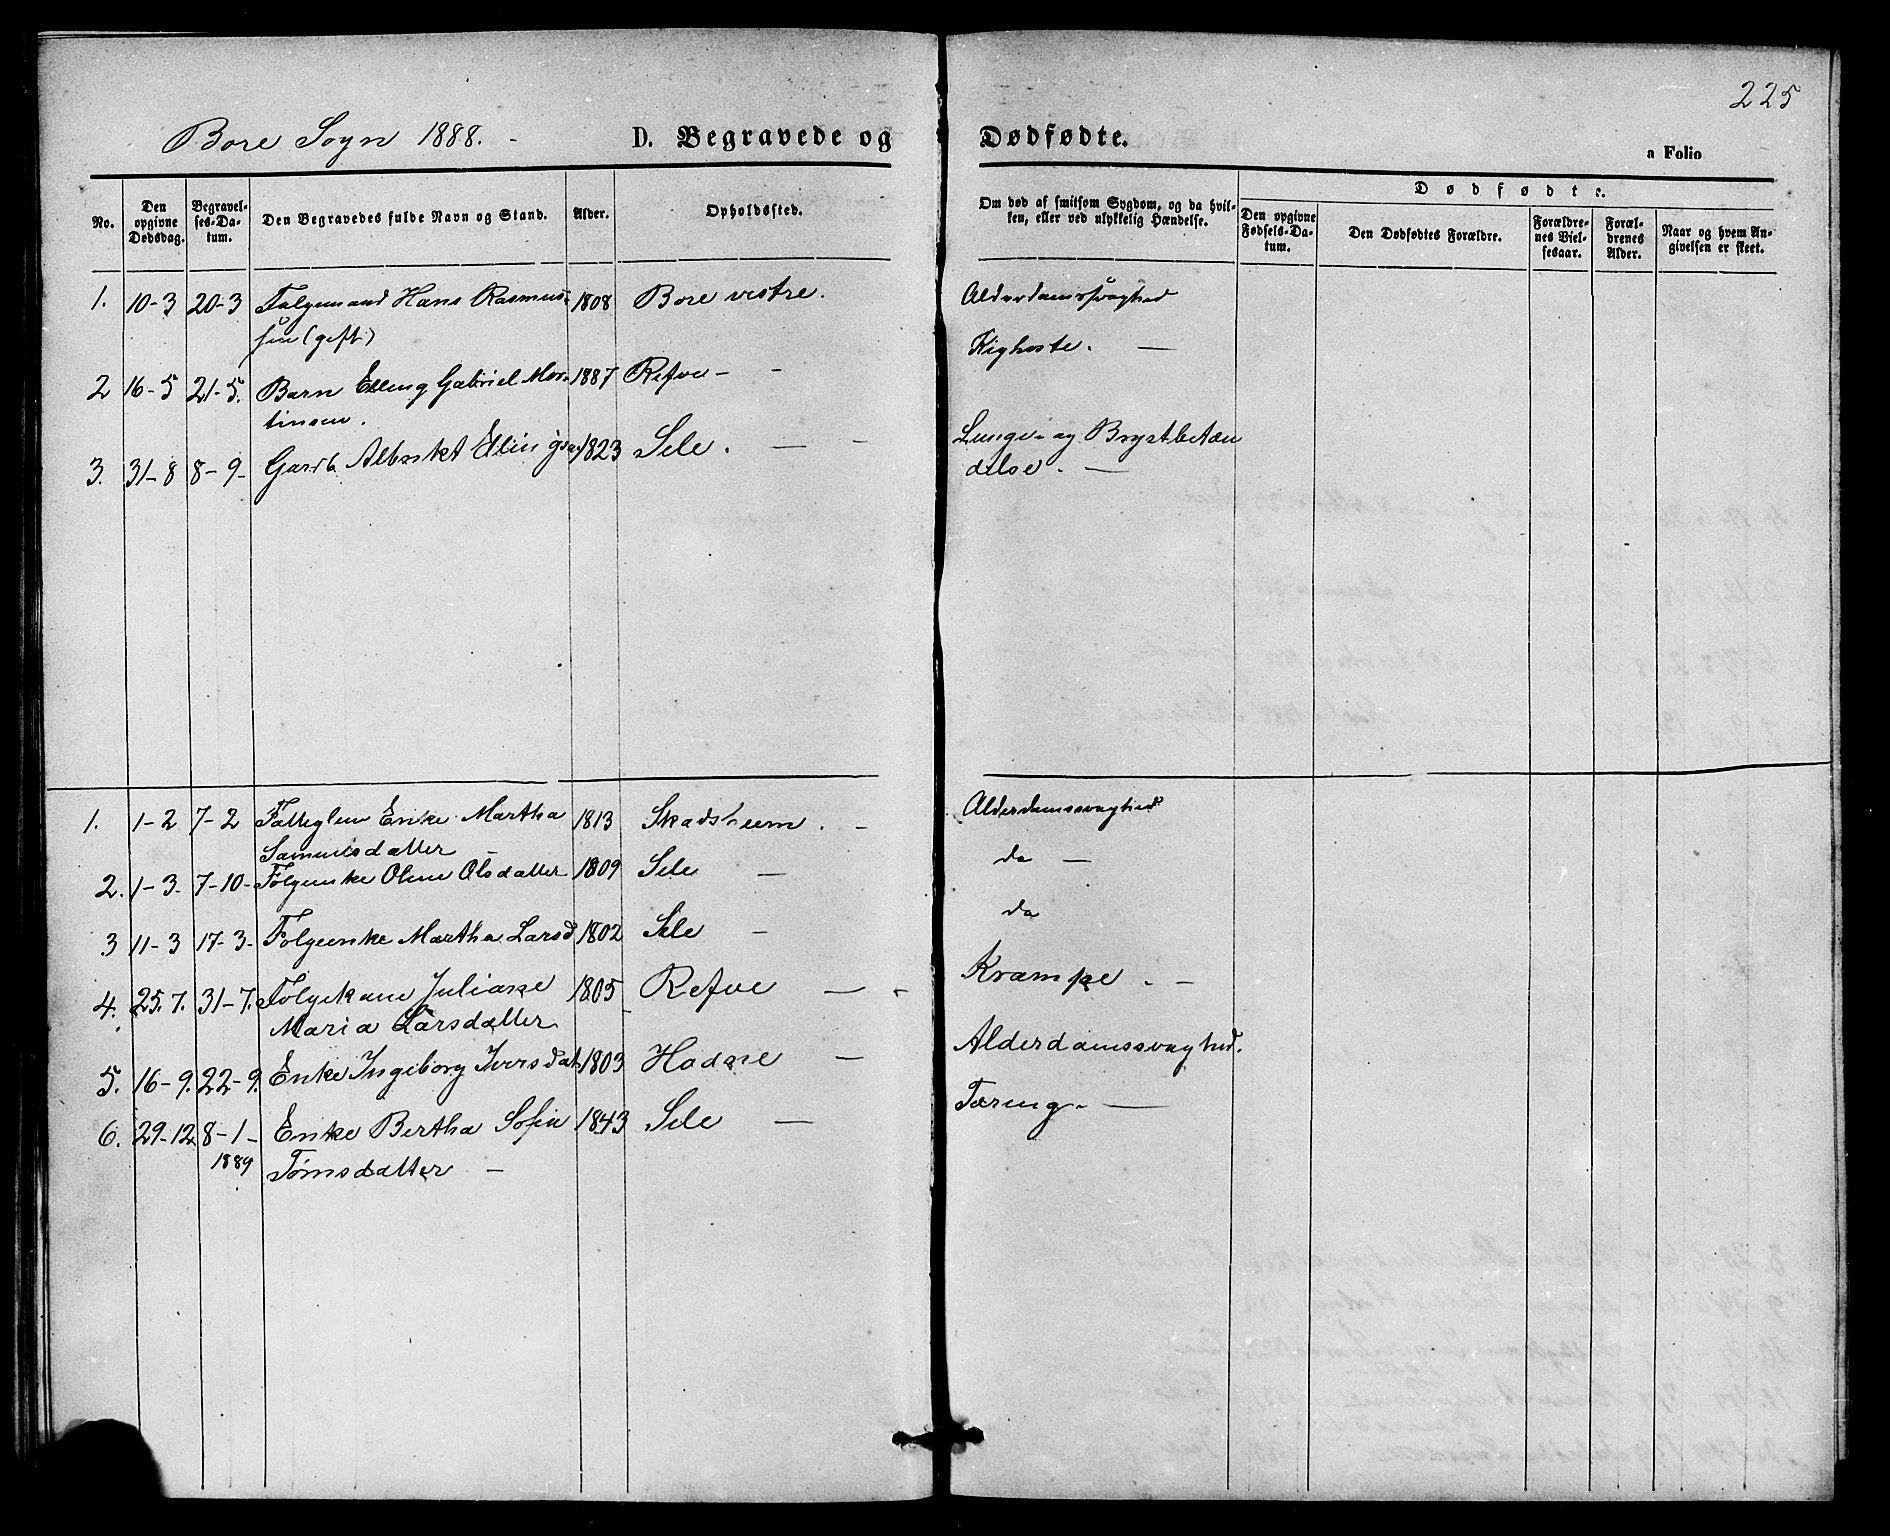 225
Bore Sogn 1888. -
D. Begravede og Dødfødte.
a Folio
No.
Den opgivne Dødsdag.
Begravelses-Datum.
Den Begravedes fulde Navn og Stand.
Alder.
Opholdssted.
Om død af smitsom Sygdom, og da hvilken, eller ved ulykkelig Hændelse.
Dødfødte.
Den opgivne Fødsels-Datum.
Den Dødfødtes Forældre.
Forældrenes Vielsesaar.
Forældrenes Alder.
Naar og hvem Angivelsen er skeet.
1. 10-3 20-3 Følgemand Hans Rasmus- 1808 Bore vestre. Alderdomssvaghed
sen (gift)
2 16-5 21-5. Barn Elling Gabriel Mor- 1887 Refve - - Kighoste. —
tinsen.
3. 31-8 8-9- Gardb. Albrikt Ellingsen 1823 Sele. — - Lunge- og Brystbetæn
delse. —
1. 1-2 7-2 Enke Martha 1813 Skadsheim. - Alderdomssvaghed
Samuelsdatter —
2. 1-3. 7-10- Følgeenke Oline Olsdatter 1809 Sele — do —
3 11-3 17-3- Følgeenke Martha Larsd 1802 Sele — do
4. 25.7. 31-7. Følgekone Juliane 1805 Refve — - Krampe. -
Maria Larsdatter
5. 16-9. 22-9. Enke Ingeborg Iversdat. 1803 Hodne — Alderdomssvaghed.
6. 29-12 8-1- Enke Bertha Sofie 1843 Sele — Tæring. —
1889 Tømsdatter —